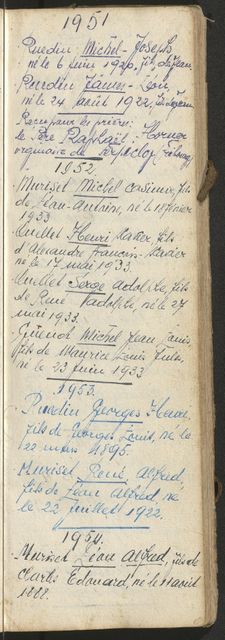 1951
Ruedin Michel-Joseph
né le 6 juin 1920, fils de Jean
Ruedin James-Léon
né le 24 août 1922,
Par le Père Raphaël Horner
originaire de
1952.
Muriset Michel Casimir, fils
de Jean-Antoine, né le 18 février
1933
Ruellet Henri Xavier, fils
d'Alexandre Francis-Xavier
né le 7 mai 1933.
Ruellet Serge Adolphe, fils
de René Adolphe, né le 27
mai 1933.
Guenot Michel Jean Louis
fils de Maurice Louis Jules
né le 23 juin 1933
1953.
Ruedin Georges Henri,
fils de Georges Louis, né le
22 mars 1895.
Muriset René, Alfred,
fils de Jean Alfred, né
le 22 juillet 1922.
1954.
Muriset Léon Alfred, fils de
Charles Edouard, né le 11 août
1888.